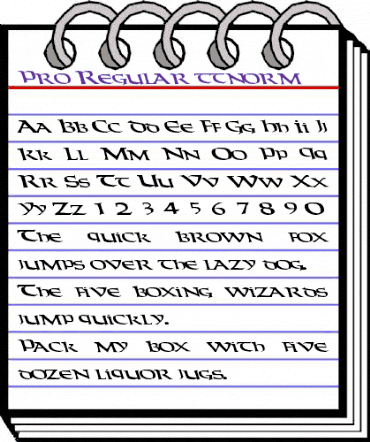 Pro Regular ttnorm
Aa Bb Cc Dd Ee Ff Gg Hh Ii Jj
Kk Ll Mm Nn Oo Pp Qq
Rr Ss Tt Uu Vv Ww Xx
Yy Zz 1 2 3 4 5 6 7 8 9 0
The quick brown fox
jumps over the lazy dog.
The five boxing wizards
jump quickly.
Pack my box with five
dozen liquor jugs.